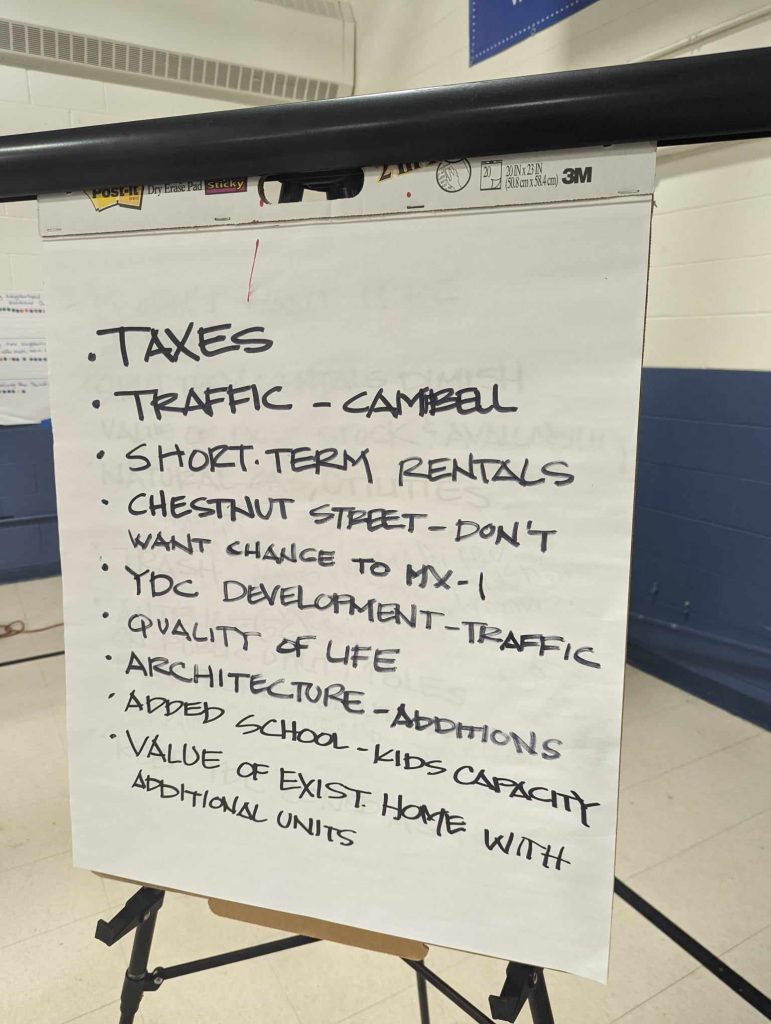 Post-it Dry Erase Pad Sticky
20 20 IN x 23 IN
(50.8 cm x 58.4 cm) 3M
• TAXES
• TRAFFIC - CAMPBELL
• SHORT-TERM RENTALS
• CHESTNUT STREET - DON'T
WANT CHANGE TO MX-1
• YDC DEVELOPMENT - TRAFFIC
• QUALITY OF LIFE
• ARCHITECTURE - ADDITIONS
• ADDED SCHOOL - KIDS CAPACITY
• VALUE OF EXIST. HOME WITH
ADDITIONAL UNITS